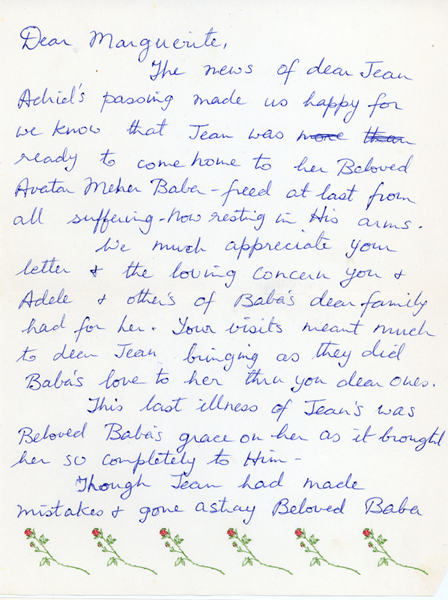 Dear Marguerite,
The news of dear Jean
Adriel's passing made us happy for
we know that Jean was more than
ready to come home to her Beloved
Avatar Meher Baba - freed at last from
all suffering - now resting in His arms.
We much appreciate your
letter & the loving concern you &
Adele & other's of Baba's dear family
had for her. Your visits meant much
to dear Jean bringing as they did
Baba's love to her thru you dear ones.
This last illness of Jean's was
Beloved Baba's grace on her as it brought
her so completely to Him -
Though Jean had made
mistakes & gone astray Beloved Baba